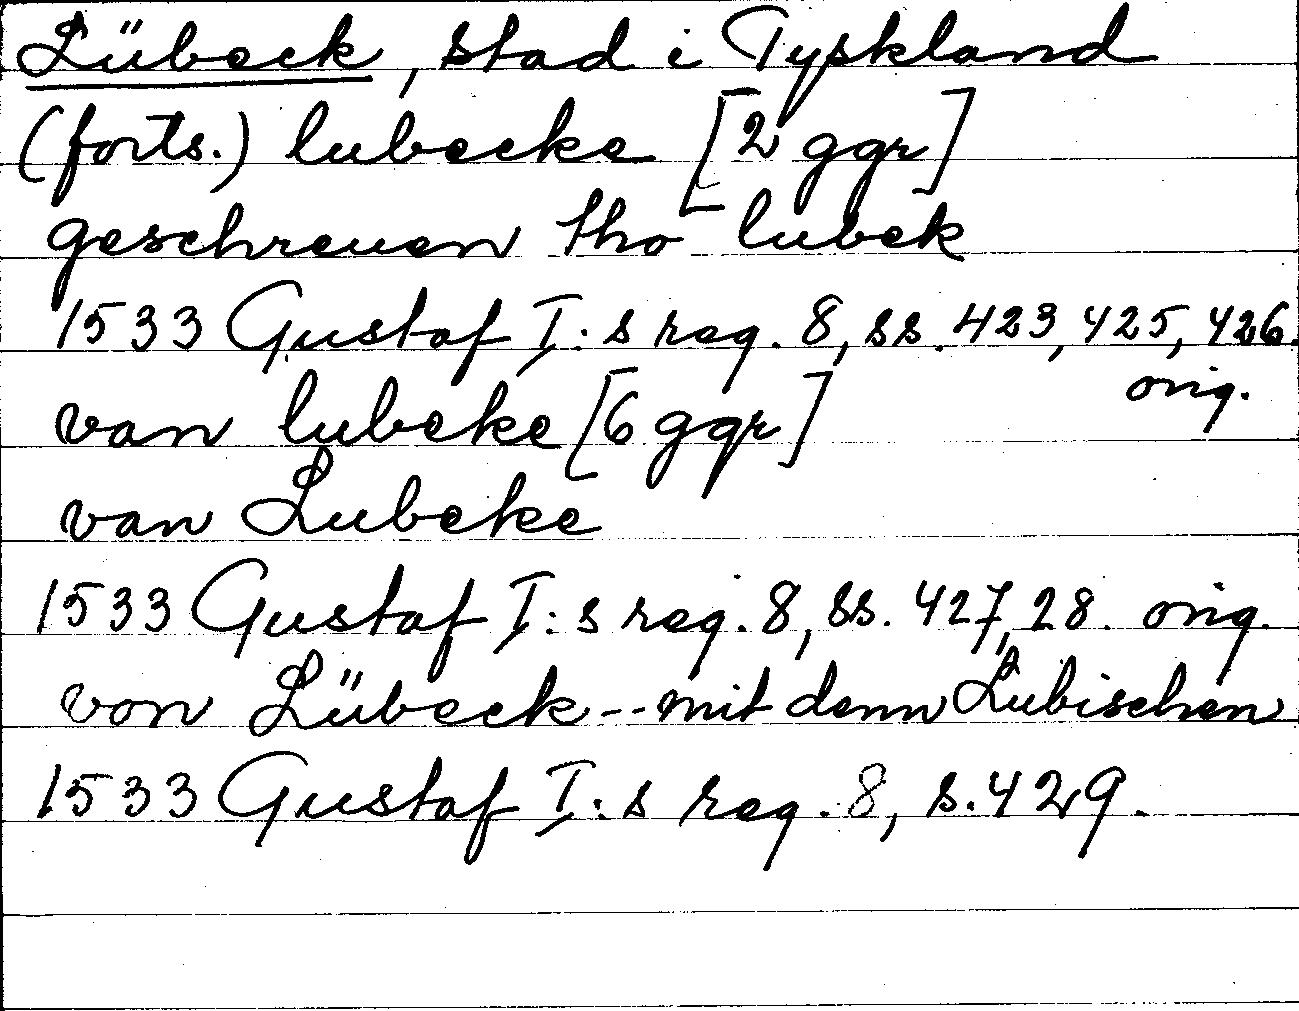 Lübeck, stad i Tyskland
(forts.) lubecke [2 ggr]
geschreuen tho lubek
1533 Gustaf I:s reg. 8, ss. 423, 425, 426.
orig.
van lubeke [6 ggr]
van Lubeke
1533 Gustaf I:s reg. 8, ss. 427, 28. orig.
von Lübeck -- mit denn Lubischen
1533 Gustaf I:s reg. 8, s. 429.